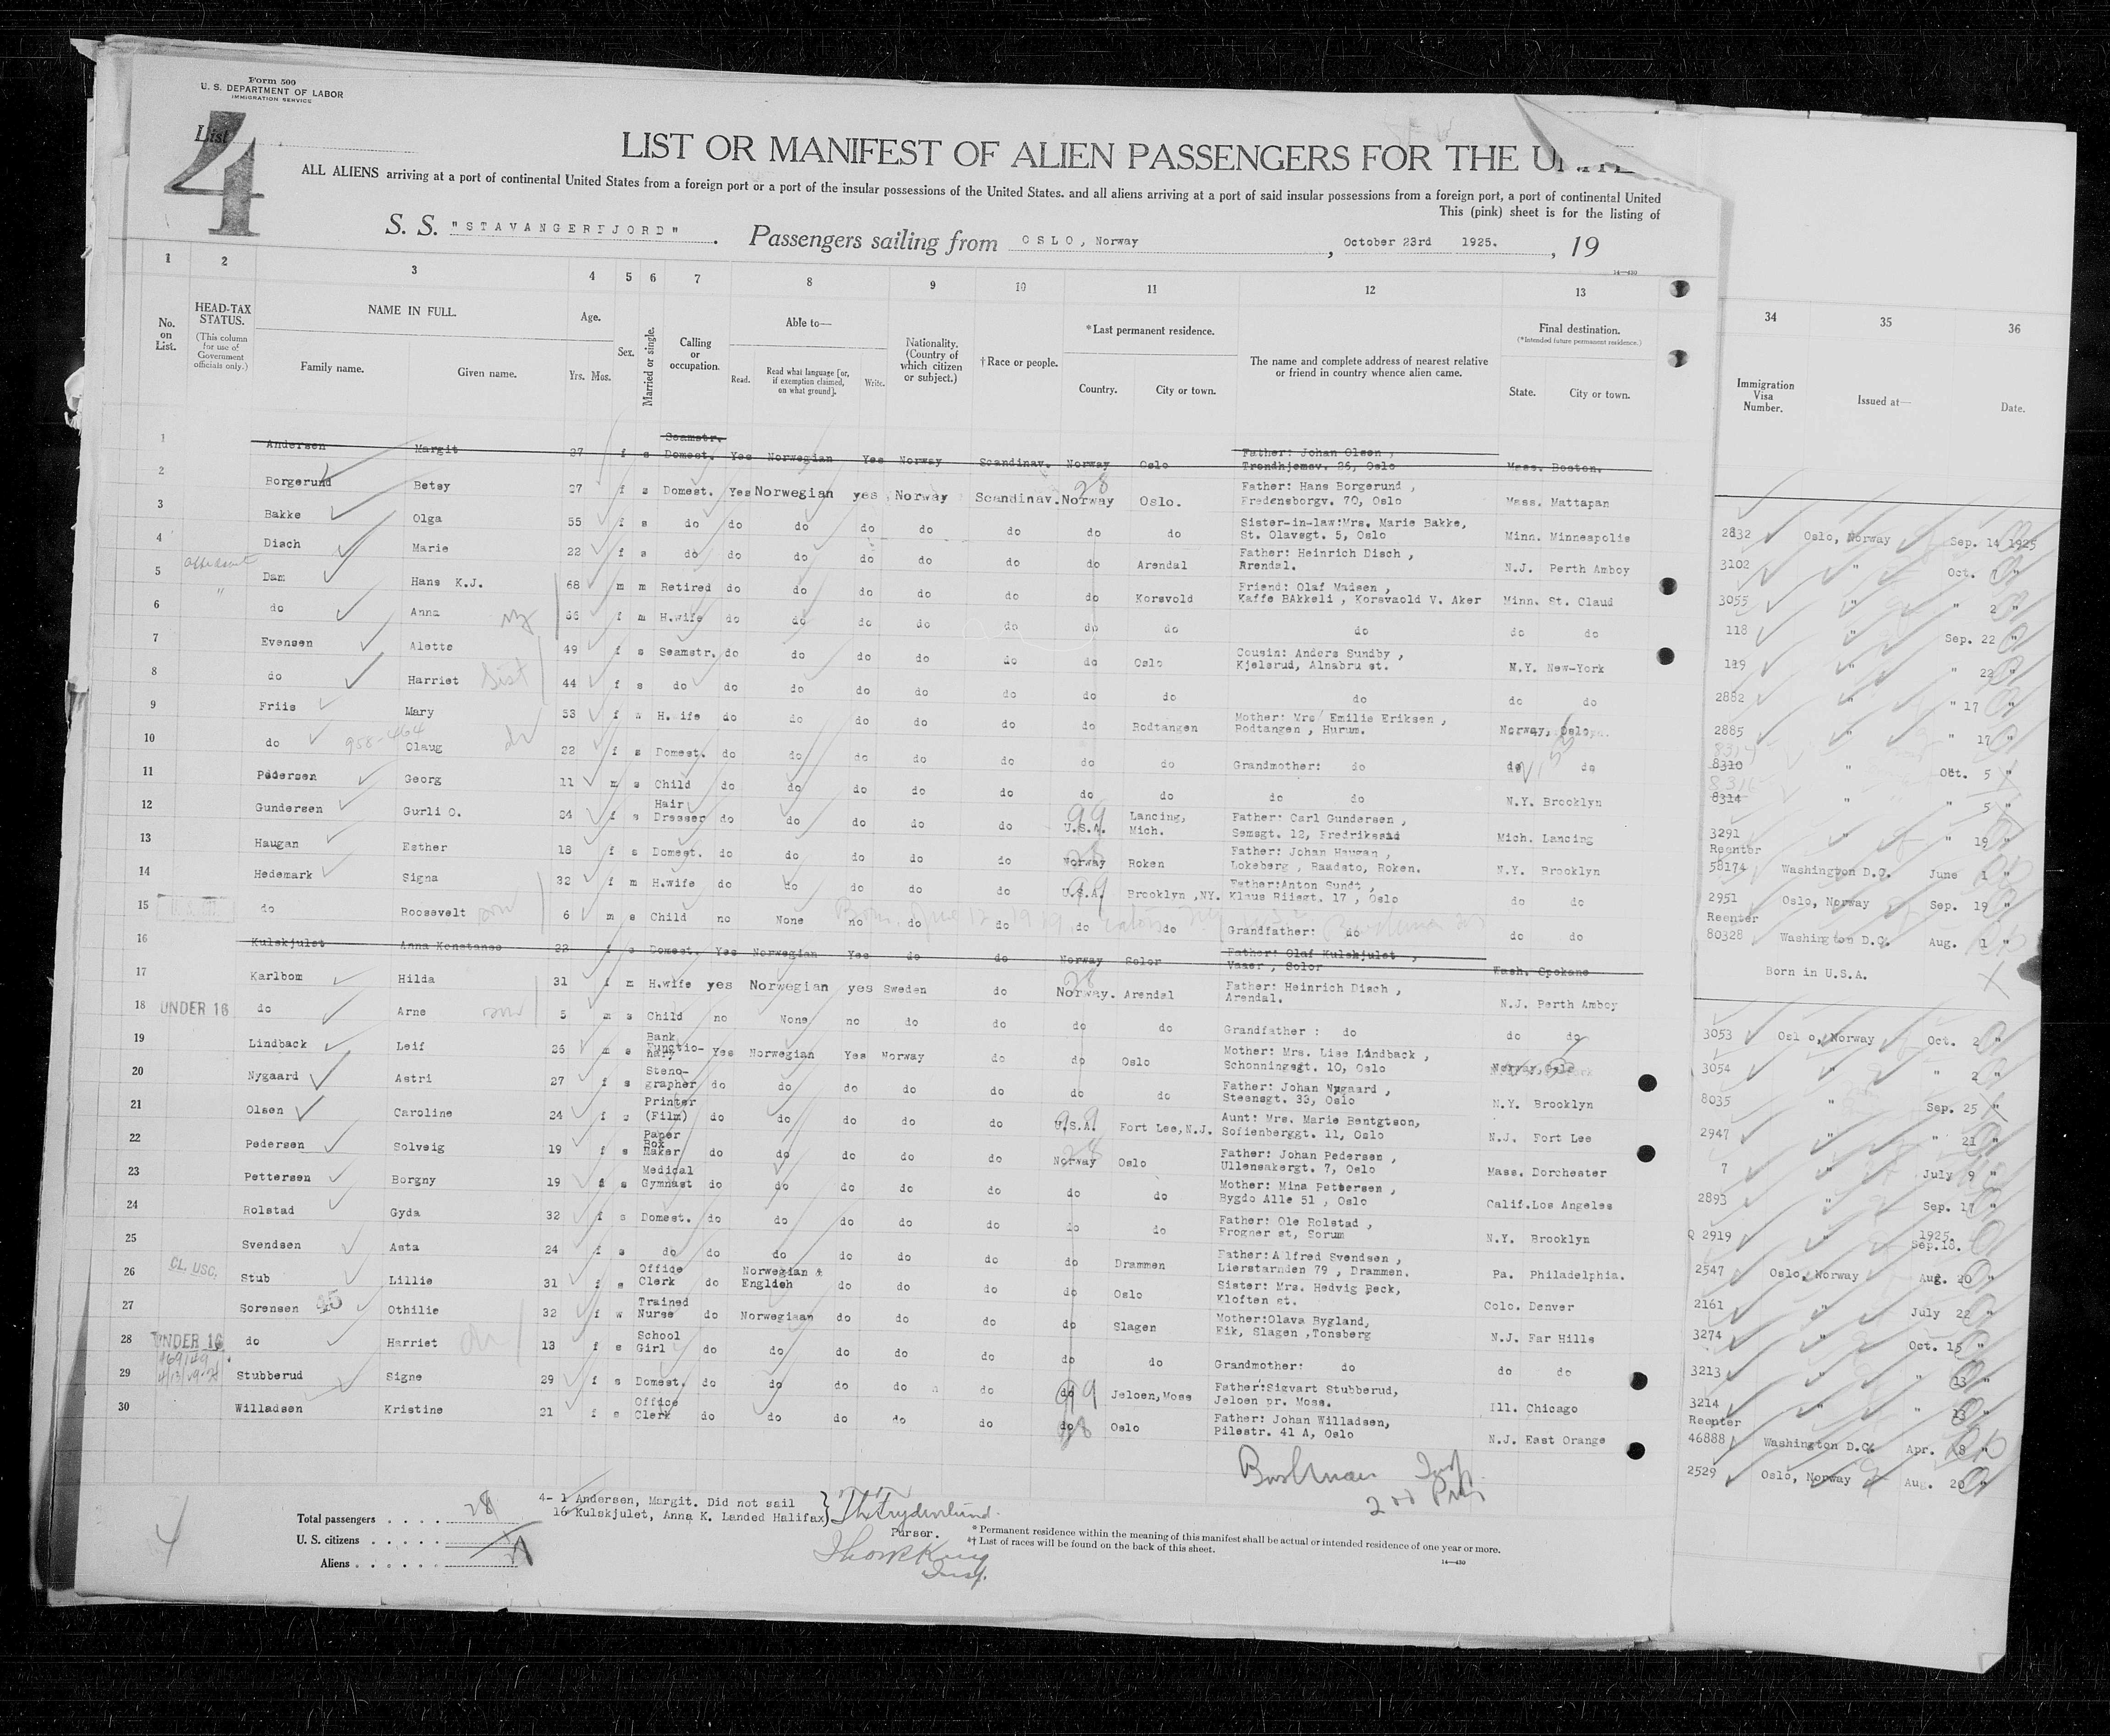 Form 500
U. S. DEPARTMENT OF LABOR
IMMIGRATION SERVICE
List 4
LIST OR MANIFEST OF ALIEN PASSENGERS FOR THE
ALL ALIENS arriving at a port of continental United States from a foreign port or a port of the insular possessions of the United States, and all aliens arriving at a port of said insular possessions from a foreign port, a port of continental United
This (pink) sheet is for the listing of
S. S. "STAVANGERFJORD" . Passengers sailing from OSLO, Norway , October 23rd 1925. , 19
14—430
1 2 3 4 5 6 7 8 9 10 11 12 13 34 35 36
No. on List.
HEAD-TAX STATUS.
(This column for use of Government officials only.)
NAME IN FULL.
Family name. Given name.
Age.
Yrs. Mos.
Sex.
Married or single.
Calling or occupation.
Able to—
Read. Read what language [or, if exemption claimed, on what ground]. Write.
Nationality. (Country of which citizen or subject.)
†Race or people.
*Last permanent residence.
Country. City or town.
The name and complete address of nearest relative or friend in country whence alien came.
Final destination.
(*Intended future permanent residence.)
State. City or town.
Immigration Visa Number.
Issued at—
Date.
1 Andersen Margit 27 f s Seamstr. Domest. Yes Norwegian Yes Norway Scandinav. Norway Oslo Father: Johan Olsen, Trondhjemsv. 26, Oslo Mass. Boston.
2 Borgerund Betsy 27 f s Domest. Yes Norwegian yes Norway Scandinav. Norway Oslo. Father: Hans Borgerund, Fredensborgv. 70, Oslo Mass. Mattapan
3 Bakke Olga 55 f s do do do do do do do do Sister-in-law:Mrs. Marie Bakke, St. Olavsgt. 5, Oslo Minn. Minneapolis
4 Disch Marie 22 f s do do do do do do do Arendal Father: Heinrich Disch, Arendal. N.J. Perth Amboy
5 Dam Hans K.J. 68 m m Retired do do do do do do Korsvold Friend: Olaf Madsen, Kaffe Bakkeli, Korsvaold V. Aker Minn. St. Claud
6 do Anna 66 f m H.wife do do do do do do do do do do
7 Evensen Alette 49 f s Seamstr. do do do do do do Oslo Cousin: Anders Sundby, Kjelsrud, Alnabru st. N.Y. New-York
8 do Harriet Sist 44 f s do do do do do do do do do do do
9 Friis Mary 53 f H.wife do do do do do do Rodtangen Mother: Mrs Emilie Eriksen, Rodtangen, Hurum. Norway, Oslo
10 do 958-464 Olaug 22 f s Domest. do do do do do do do Grandmother: do do do
11 Pedersen Georg 11 m s Child do do do do do do do do do N.Y. Brooklyn
12 Gundersen Gurli O. 24 f s Hair Dresser do do do do do U.S.A. 99 Lancing, Mich. Father: Carl Gundersen, Semsgt. 12, Fredrikssad Mich. Lancing
13 Haugan Esther 18 f s Domest. do do do do do Norway Roken Father: Johan Haugan, Lokeberg, Raadsto, Roken. N.Y. Brooklyn
14 Hedemark Signa 32 f m H.wife do do do do do U.S.A. Brooklyn,NY. Father:Anton Sundt, Klaus Riisgt. 17, Oslo do do
15 do Roosevelt son 6 m s Child no None no do do do do Grandfather: do do do
16 Kulskjulet Anna Konstanse 23 f s Domest. Yes Norwegian Yes do do Norway Solor Father: Olaf Kulskjulet, Vaaer, Solor Wash. Spokane
17 Karlbom Hilda 31 f m H.wife yes Norwegian yes Sweden do Norway. Arendal Father: Heinrich Disch, Arendal. N.J. Perth Amboy
18 UNDER 16 do Arne son 5 m s Child no None no do do do do Grandfather: do do do
19 Lindback Leif 26 m s Bank Functionary Yes Norwegian Yes Norway do do Oslo Mother: Mrs. Lise Lindback, Schonningsgt. 10, Oslo Norway, Oslo
20 Nygaard Astri 27 f s Stenographer do do do do do do do Father: Johan Nygaard, Steensgt. 33, Oslo N.Y. Brooklyn
21 Olsen Caroline 24 f s Printer (Film) do do do do do U.S.A. 99 Fort Lee,N.J. Aunt: Mrs. Marie Bentgtson, Sofienberggt. 11, Oslo N.J. Fort Lee
22 Pedersen Solveig 19 f s Paper Box Maker do do do do do Norway Oslo Father: Johan Pedersen, Ullensakergt. 7, Oslo Mass. Dorchester
23 Pettersen Borgny 19 f s Medical Gymnast do do do do do do do Mother: Mina Pettersen, Bygdo Alle 51, Oslo Calif. Los Angeles
24 Rolstad Gyda 32 f s Domest. do do do do do do do Father: Ole Rolstad, Frogner st, Sorum N.Y. Brooklyn
25 Svendsen Asta 24 f s do do do do do do do Drammen Father:Alfred Svendsen, Lierstranden 79, Drammen. Pa. Philadelphia.
26 CL. USC. Stub Lillie 31 f s Office Clerk do Norwegian & English do do do do Oslo Sister: Mrs. Hedvig Beck, Kloften st. Colo. Denver
27 Sorensen Othilie 32 f w Trained Nurse do Norwegiaan do do do do Slagen Mother:Olava Bygland, Eik, Slagen, Tonsberg N.J. Far Hills
28 UNDER 16 do Harriet 13 f s School Girl do do do do do do do Grandmother: do do do
29 Stubberud Signe 29 f s Domest. do do do do do do 99 Jeloen,Moss Father:Sigvart Stubberud, Jeloen pr. Moss. Ill. Chicago
30 Willadsen Kristine 21 f s Office Clerk do do do do do do Oslo Father: Johan Willadsen, Pilestr. 41 A, Oslo N.J. East Orange
2832 Oslo, Norway Sep. 14 1925
3102 " Oct. 7 "
3055 " " 2 "
118 " Sep. 22 "
119 " " 22 "
2882 " " 17 "
2885 " " 17 "
8310 " Oct. 5 "
8314 " " 5 "
3291 " " 19 "
Reenter
58174 Washington D.C. June 1 "
2951 Oslo, Norway Sep. 19 "
Reenter
80328 Washington D.C. Aug. 1 "
Born in U.S.A.
3053 Oslo, Norway Oct. 2 "
3054 " " 2 "
8035 " Sep. 25 "
2947 " " 21 "
7 " July 9 "
2893 " Sep. 17 "
Q 2919 " 1925. Sep.18.
2547 Oslo, Norway Aug. 20 "
2161 " July 22 "
3274 " Oct. 15 "
3213 " " 13 "
3214 " " 13 "
Reenter
46888 Washington D.C. Apr. 8 "
2529 Oslo, Norway Aug. 20 "
4- 1 Andersen, Margit. Did not sail
16 Kulskjulet, Anna K. Landed Halifax
Purser.
Total passengers . . . . 28
U. S. citizens . . . . . .
Aliens . . . . . .
4
* Permanent residence within the meaning of this manifest shall be actual or intended residence of one year or more.
† List of races will be found on the back of this sheet.
14—430